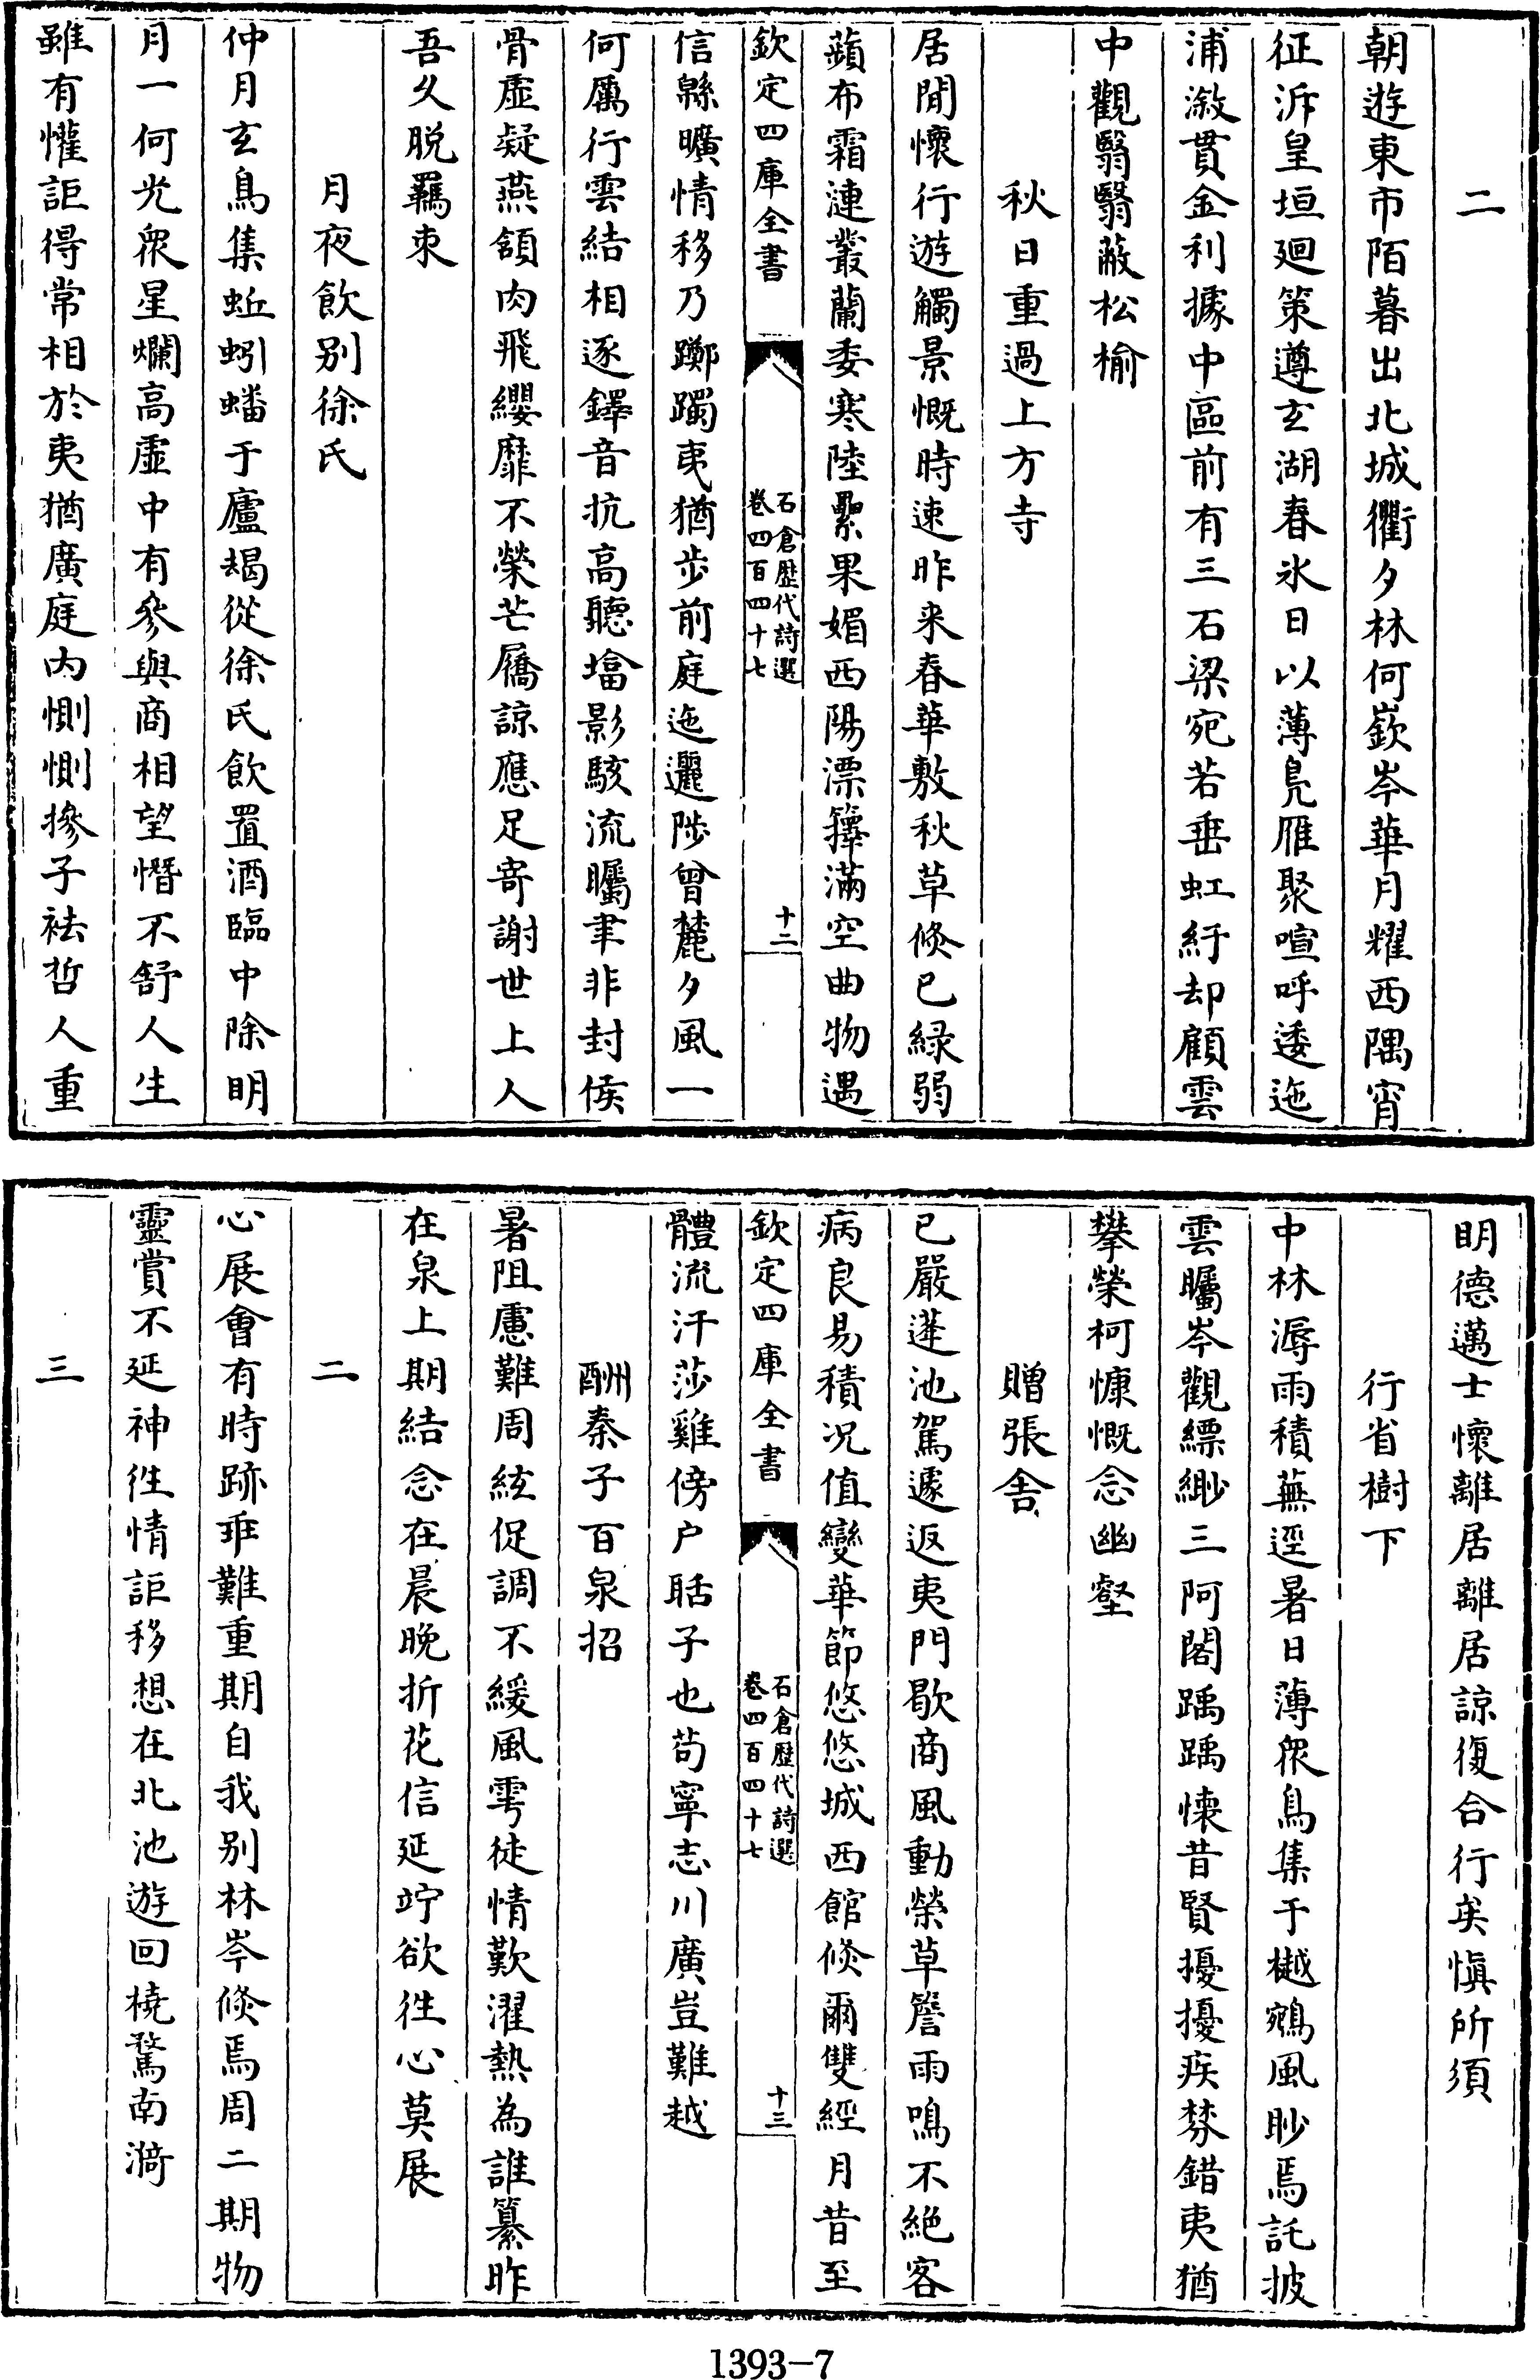 二
朝遊東市陌暮出北城衢夕林何嶔岑華月耀西隅宵
征泝皇垣廻策遵玄湖春氷日以薄鳧雁聚喧呼逶迤
浦漵貫金利據中區前有三石梁宛若垂虹紆却顧雲
中觀翳翳蔽松榆
秋日重過上方寺
居閒懷行遊觸景慨時速昨来春華敷秋草倐已緑弱
蘋布霜漣叢蘭委寒陸纍果媚西陽漂籜滿空曲物遇
欽定四庫全書
石倉歷代詩選
卷四百四十七
十二
信緜曠情移乃躑躅夷猶步前庭迤邐陟曾麓夕風一
何厲行雲結相逐鐸音抗高聽墖影駭流矚聿非封侯
骨虛疑燕頷肉飛纓靡不榮芒屩諒應足寄謝世上人
吾久脱羈束
月夜飲别徐氏
仲月玄鳥集蚯蚓蟠于廬朅從徐氏飲置酒臨中除明
月一何光衆星爛高虛中有參與商相望憯不舒人生
雖有懽詎得常相於夷猶廣庭内惻惻摻子袪哲人重
明德邁士懷離居離居諒復合行矣慎所須
行省樹下
中林溽雨積蕪逕暑日薄衆鳥集于樾鵷風眇焉託披
雲矚岑觀縹緲三阿閣踽踽懐昔賢擾擾疾棼錯夷猶
攀榮柯慷慨念幽壑
贈張舍
已嚴蓬池駕遽返夷門歇商風動榮草簷雨鳴不絶客
病良易積况值變華節悠悠城西館倐爾雙經月昔至
欽定四庫全書
石倉歷代詩選
卷四百四十七
十三
體流汗莎雞傍户聒子也茍寧志川廣豈難越
酬秦子百泉招
暑阻慮難周絃促調不緩風雩徒情歎濯熱為誰纂昨
在泉上期結念在晨晚折花信延竚欲徃心莫展
二
心展會有時跡乖難重期自我别林岑倐焉周二期物
靈賞不延神徃情詎移想在北池遊回橈騖南漪
三
1393-7